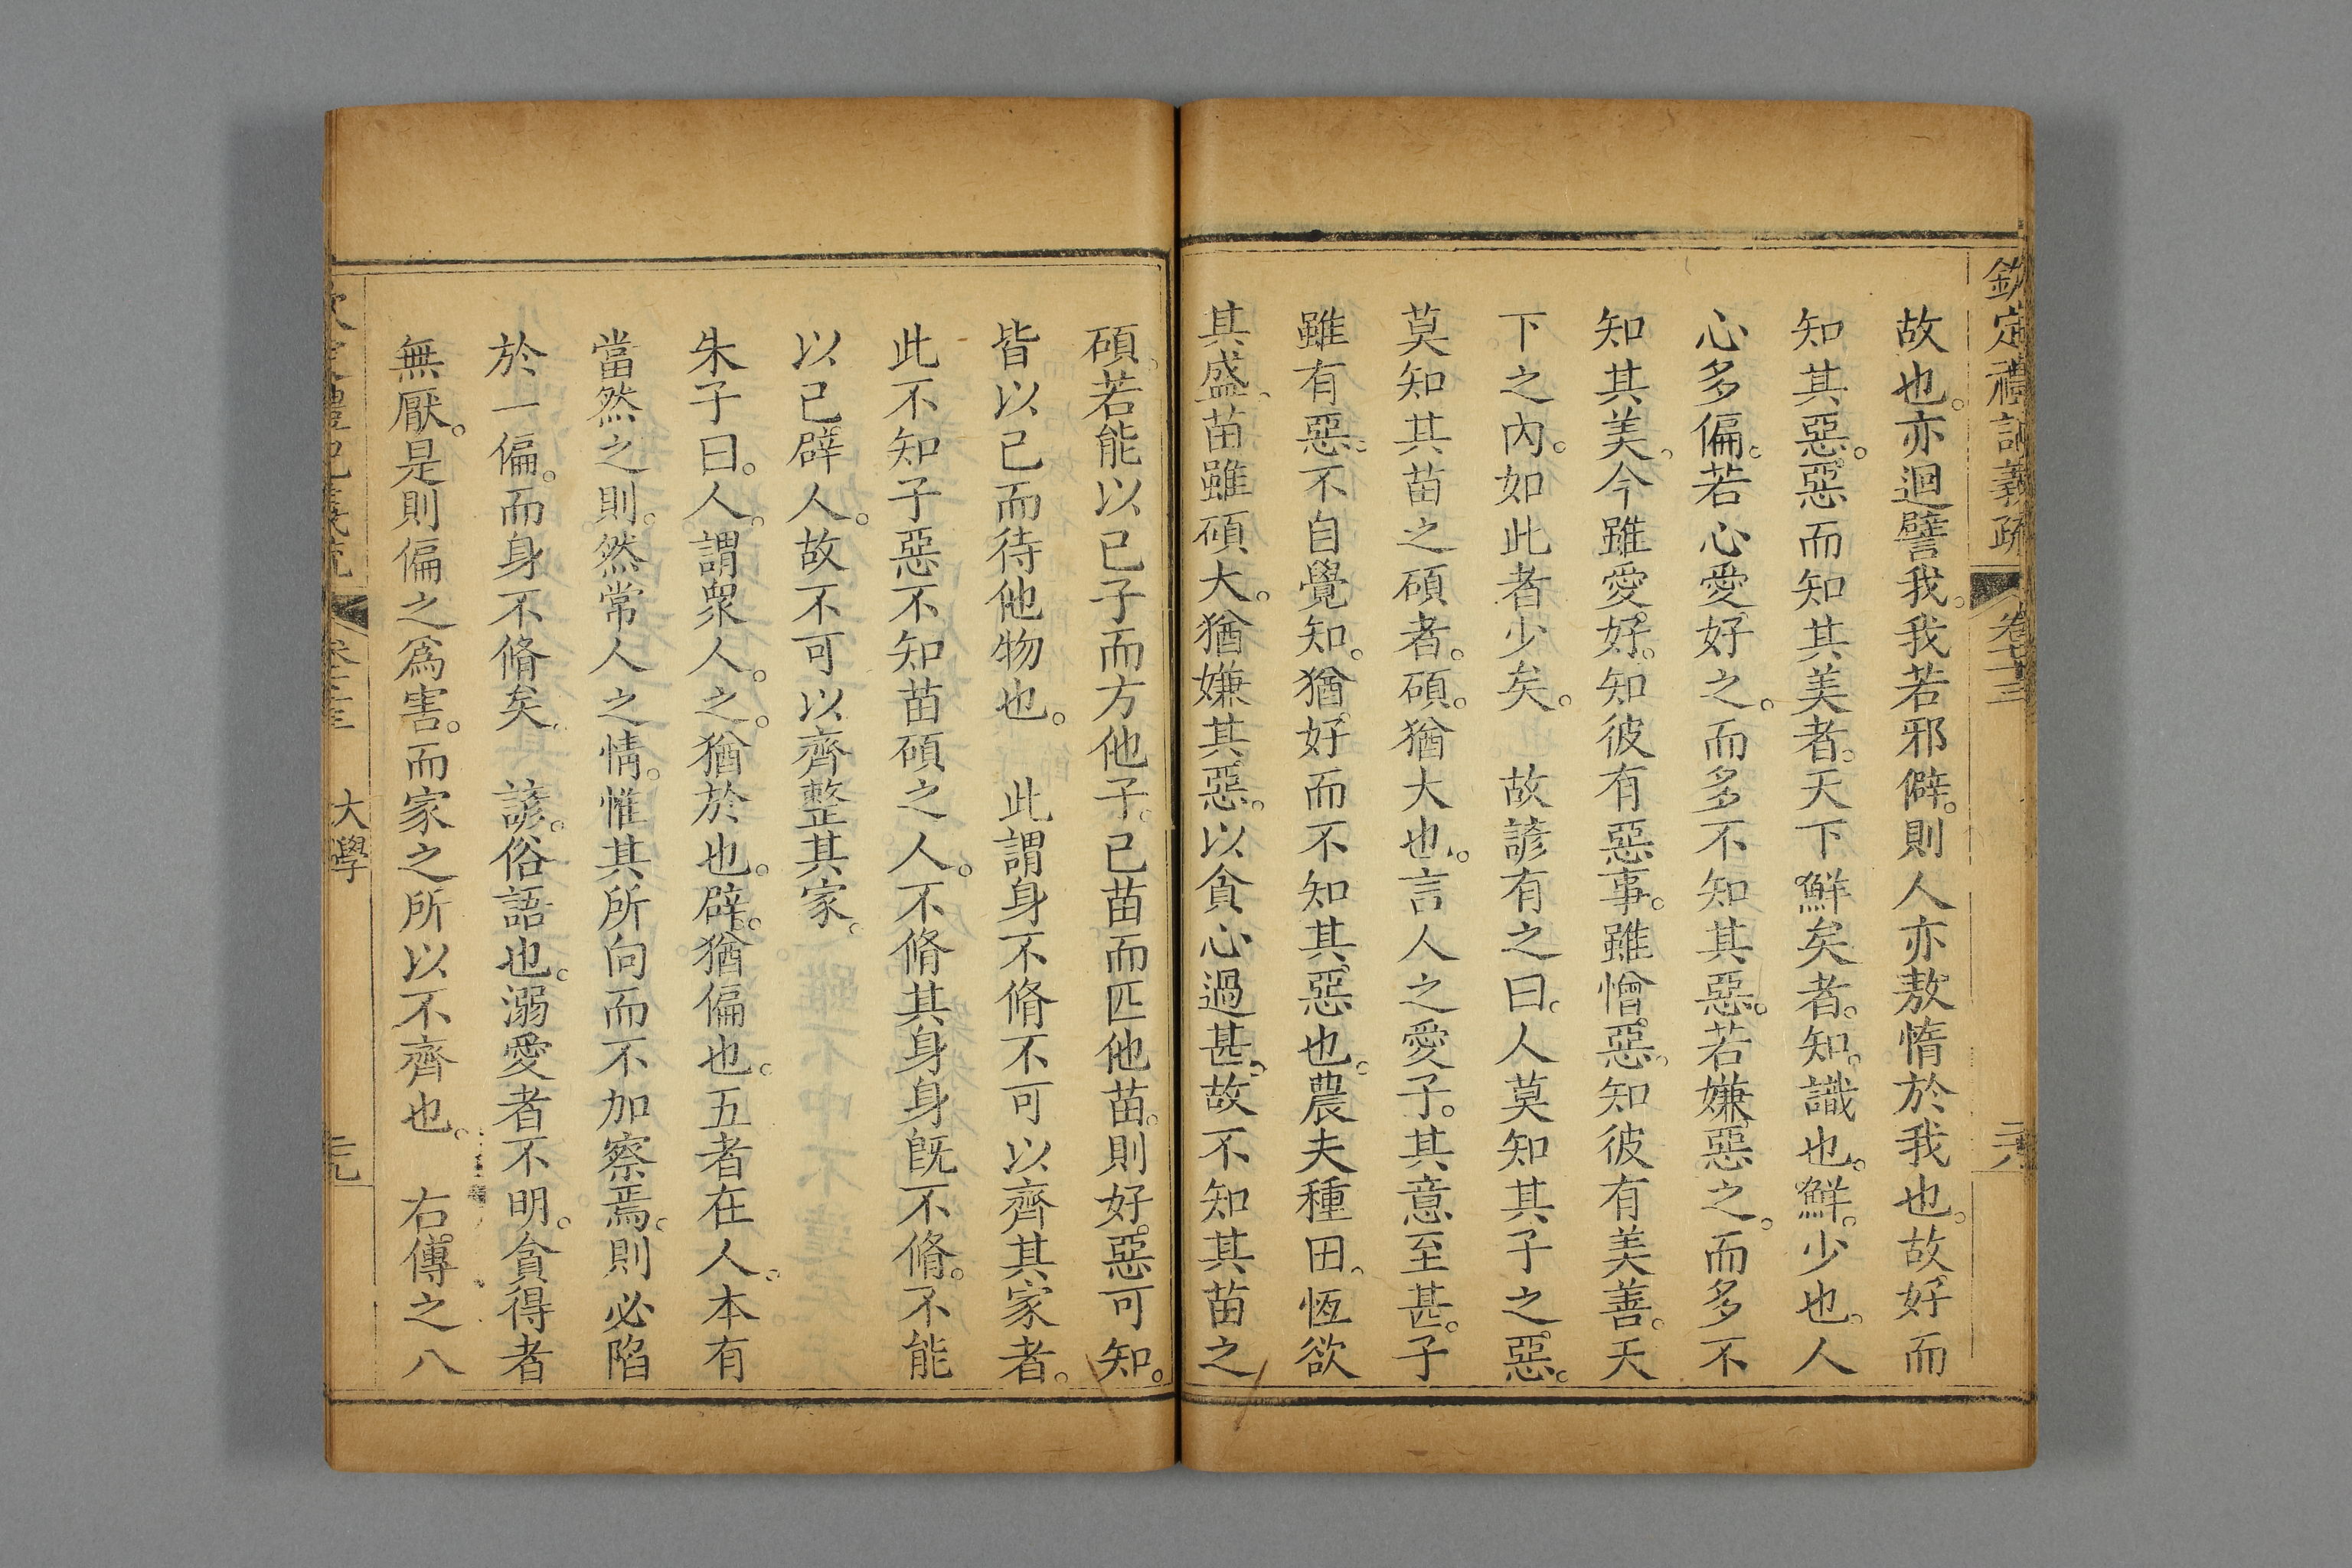 欽定禮記義疏 卷七十三 二八
故也。亦迴譬我。我若邪僻。則人亦敖惰於我也。故好而
知其惡。惡而知其美者。天下鮮矣者。知。識也。鮮。少也。人
心多偏。若心愛好之。而多不知其惡。若嫌惡之。而多不
知其美。今雖愛好。知彼有惡事。雖憎惡。知彼有美善。天
下之內。如此者少矣。 故諺有之曰。人莫知其子之惡。
莫知其苗之碩者。碩。猶大也。言人之愛子。其意至甚。子
雖有惡。不自覺知。猶好而不知其惡也。農夫種田。恆欲
其盛。苗雖碩大。猶嫌其惡。以貪心過甚。故不知其苗之
碩。若能以已子而方他子。已苗而匹他苗。則好惡可知。
皆以已而待他物也。 此謂身不脩不可以齊其家者。
此不知子惡不知苗碩之人。不脩其身身旣不脩。不能
以已辟人。故不可以齊整其家。
朱子曰。人。謂衆人。之。猶於也。辟。猶偏也。五者在人。本有
當然之則。然常人之情。惟其所向而不加察焉。則必陷
於一偏。而身不脩矣。 諺。俗語也。溺愛者不明。貪得者
無厭。是則偏之爲害。而家之所以不齊也。 右傳之八
大學 二九